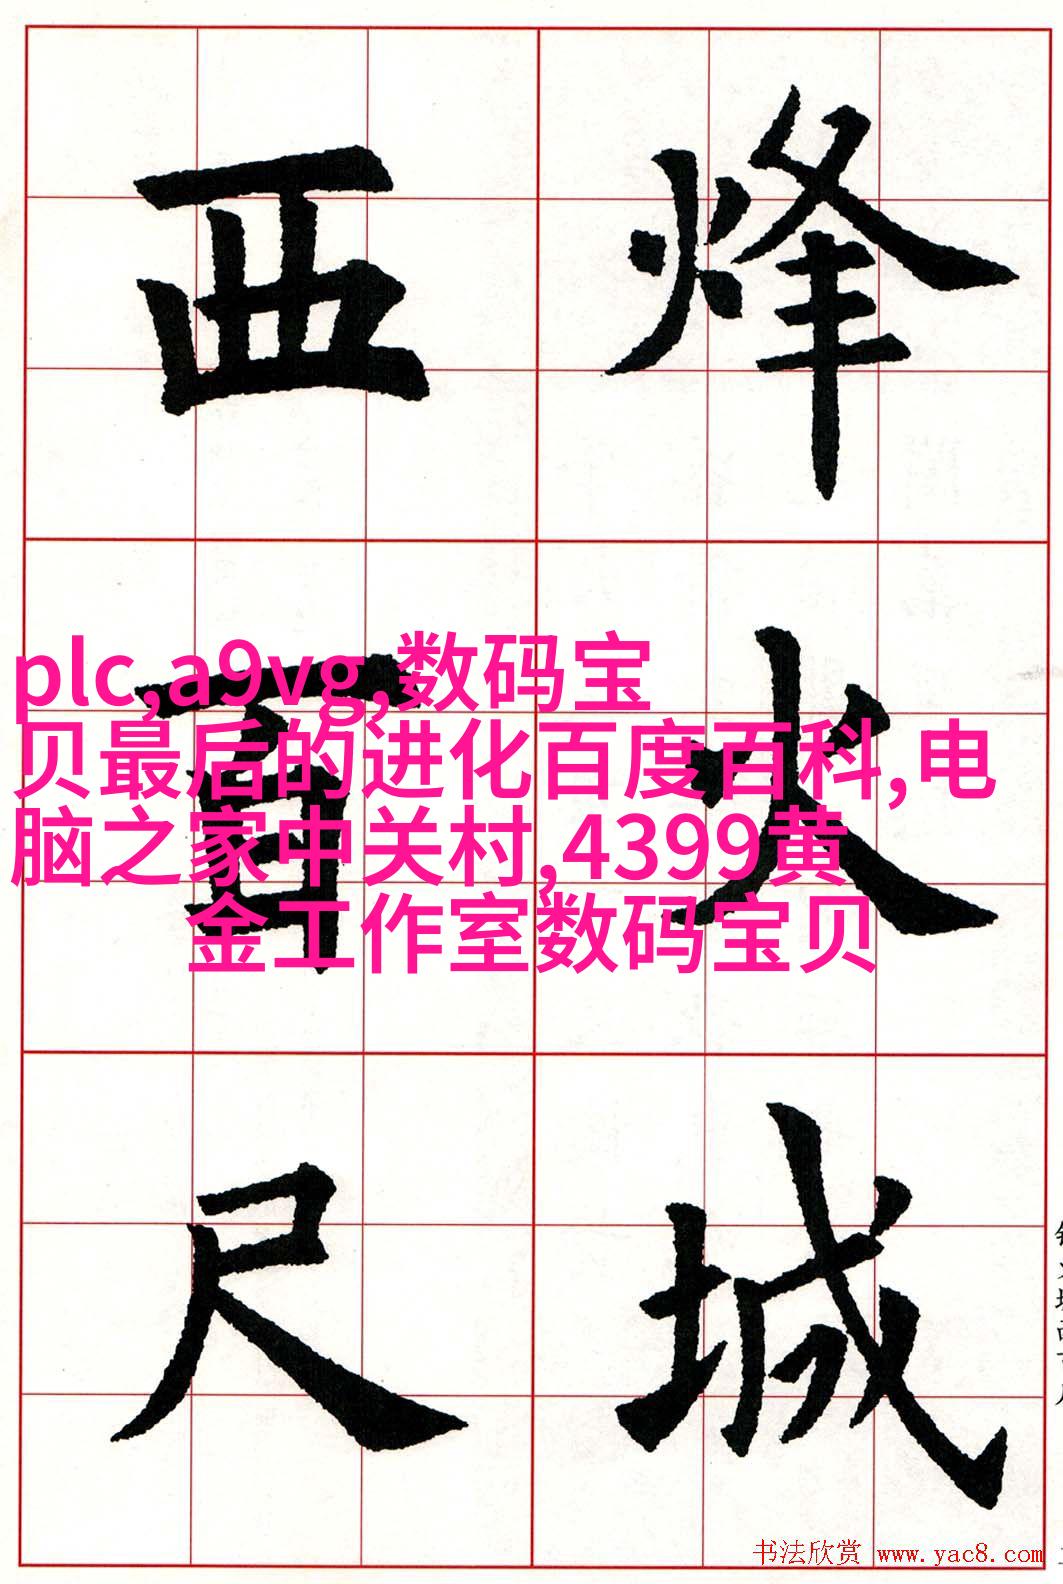 烽火城
西百尺
plc,a9vg,数码宝
贝最后的进化百度百科,电
脑之家中关村,4399黄
金工作室数码宝贝
书法欣赏 www.yac8.com